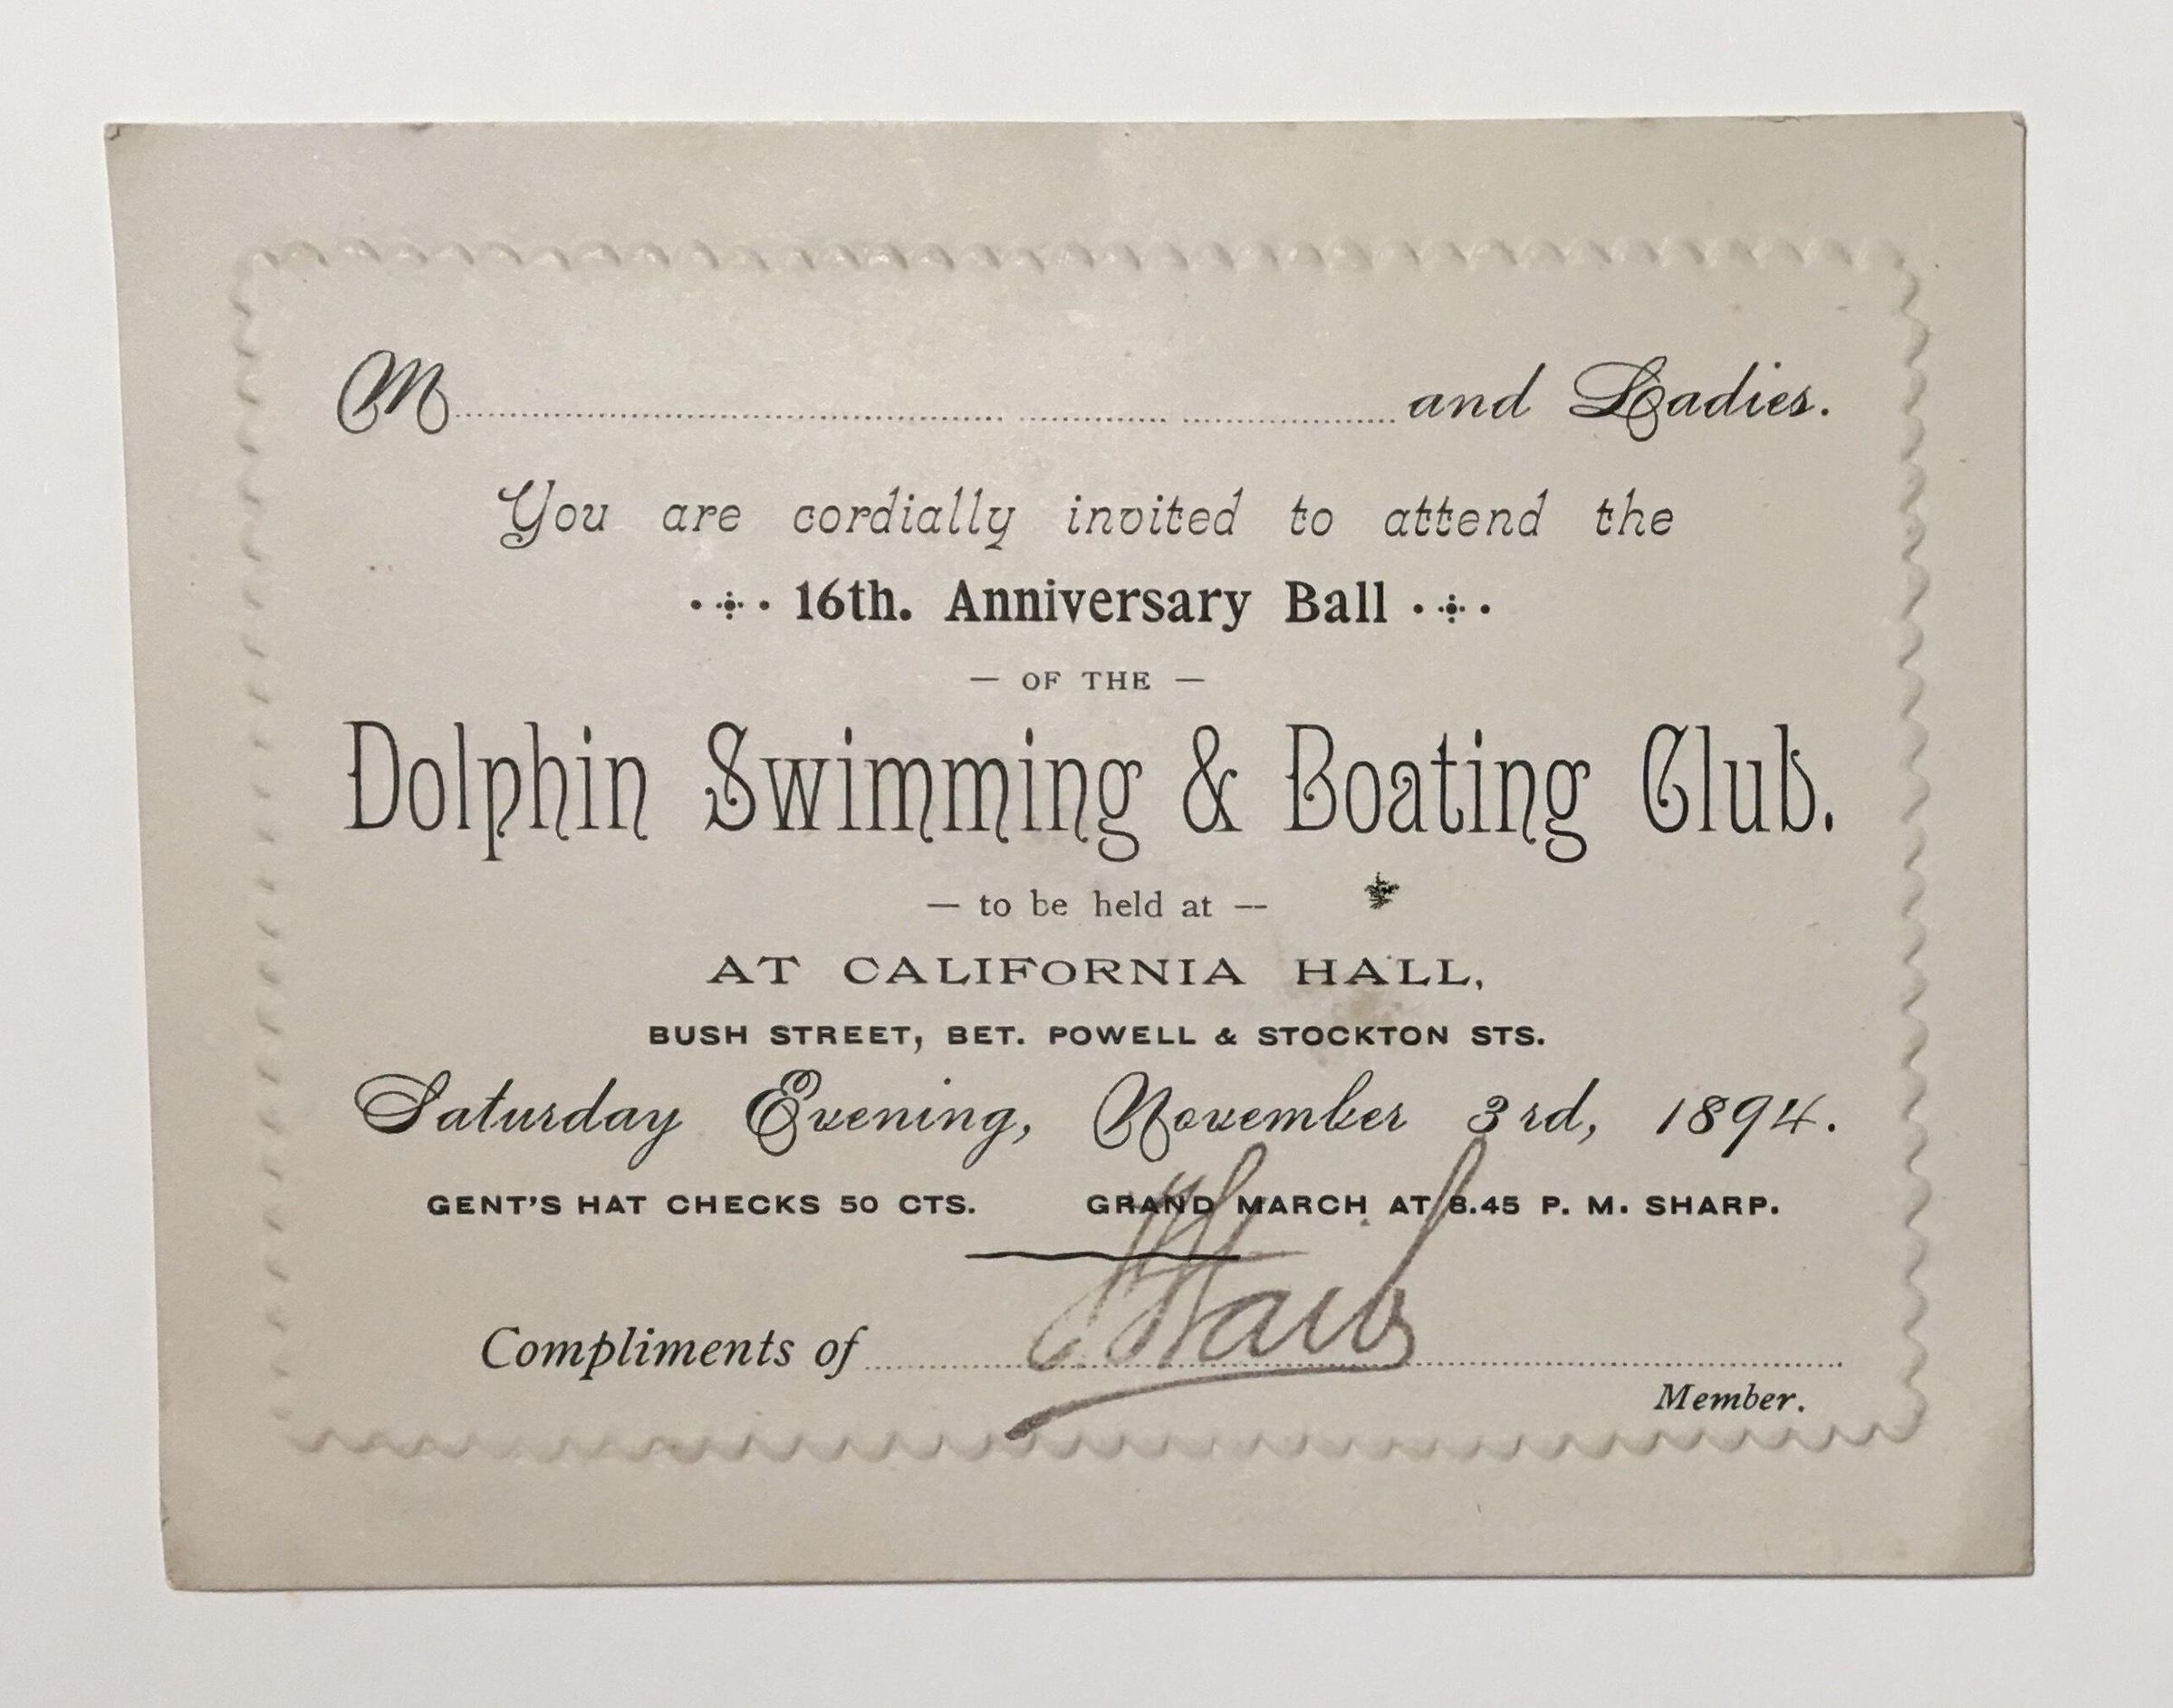 M and Ladies.
You are cordially invited to attend the
16th. Anniversary Ball
— OF THE —
Dolphin Swimming & Boating Club.
— to be held at —
AT CALIFORNIA HALL,
BUSH STREET, BET. POWELL & STOCKTON STS.
Saturday Evening, November 3rd, 1894.
GENT'S HAT CHECKS 50 CTS. GRAND MARCH AT 8.45 P. M. SHARP.
Compliments of
Member.